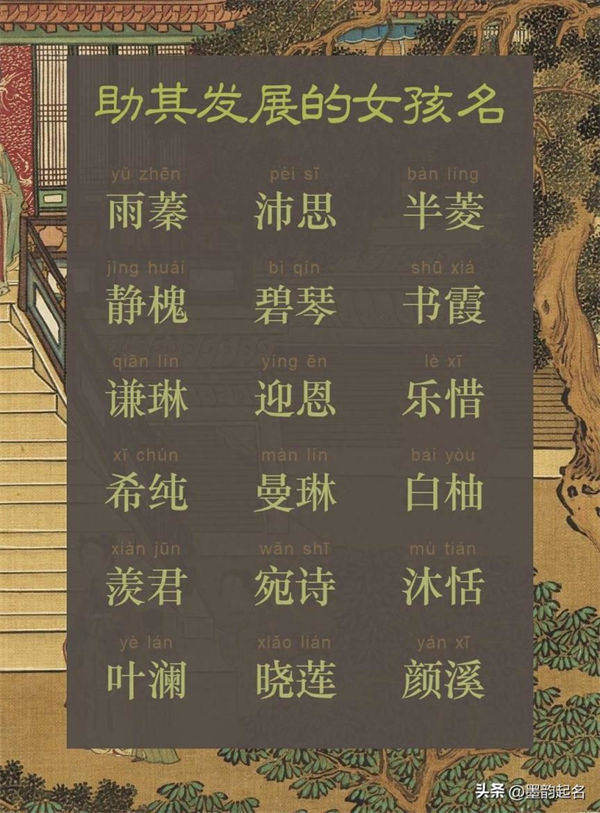 助其发展的女孩名
yǔ zhēn pèi sī bàn líng
雨蓁 沛思 半菱
jìng huái bì qín shū xiá
静槐 碧琴 书霞
qiān lín yíng ēn lè xī
谦琳 迎恩 乐惜
xī chún màn lín bái yòu
希纯 曼琳 白柚
xiàn jūn wǎn shī mù tián
羡君 宛诗 沐恬
yè lán xiǎo lián yán xī
叶澜 晓莲 颜溪
头条 @墨韵起名